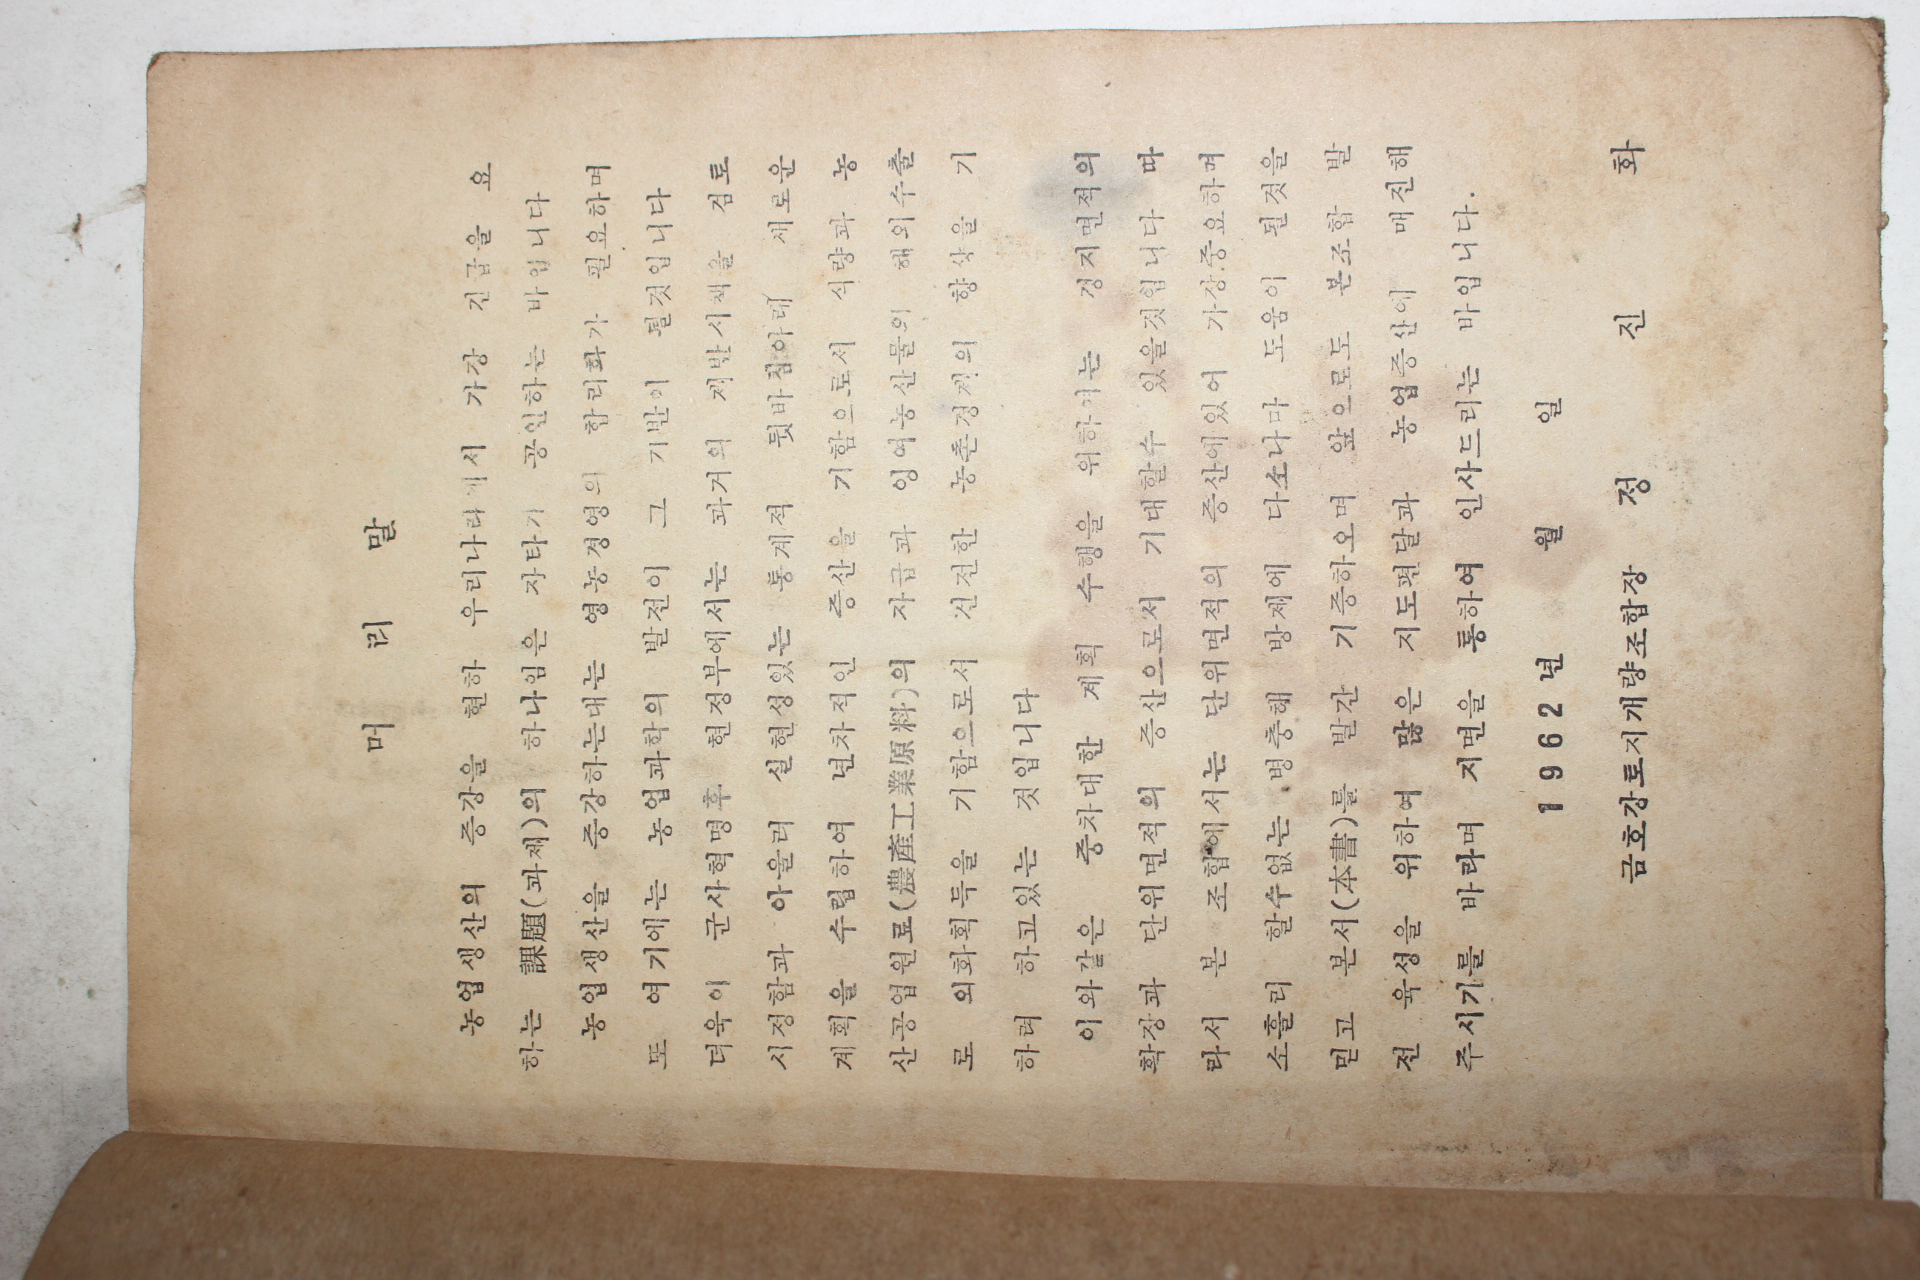 머 리 말
농업생산의 증강을 현하 우리나라에서 가장 긴급을 요
하는 課題(과제)의 하나임은 자타가 공인하는 바입니다
농업생산을 증강하는대는 영농경영의 합리화가 필요하며
또 여기에는 농업과학의 발전이 그 기반이 될것입니다
더욱이 군사혁명후 현정부에서는 과거의 제반시책을 검토
시정함과 아울러 실현성있는 통계적 뒷바침아래 새로운
계획을 수립하여 년차적인 증산을 기함으로서 식량과 농
산공업원료(農產工業原料)의 자급과 잉여농산물의 해외수출
로 외화획득을 기함으로서 건전한 농촌경제의 향상을 기
하려 하고있는 것입니다
이와같은 중차대한 계획 수행을 위하여는 경지면적의
확장과 단위면적의 증산으로서 기대할수 있을것입니다 따
라서 본 조합에서는 단위면적의 증산에있어 가장중요하며
소홀리 할수없는 병충해 방제에 다소나마 도움이 될것을
믿고 본서(本書)를 발간 기증하오며 앞으로도 본조합 발
전 육성을 위하여 많은 지도편달과 농업증산에 매진해
주시기를 바라며 지면을 통하여 인사드리는 바입니다.
1962년 월 일
금호강토지개량조합장 정 진 화